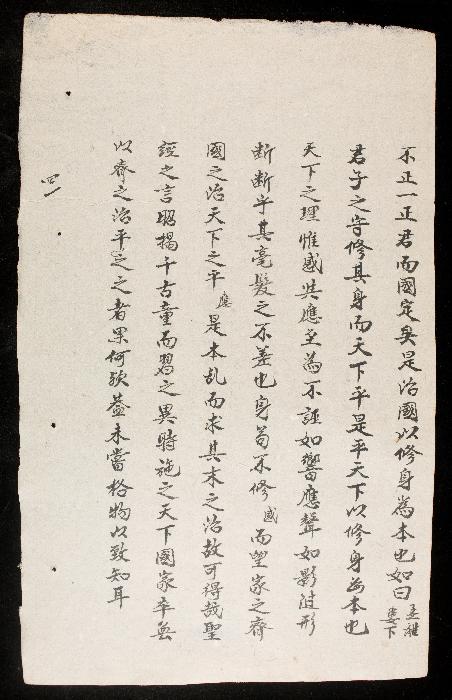 不正一正君而國定矣是治國以修身為本也如曰孟離婁下
君子之守修其身而天下平是平天下以修身為本也
天下之理惟感與應至為不誣如響應聲如影隨形
斷斷乎其毫髮之不差也身苟不修感而望家之齊
國之治天下之平應是本乱而求其末之治故可得哉聖
經之言昭揭千古童而習之異時施之天下國家卒無
以齊之治平之之者果何欤蓋未嘗格物以致知耳
四